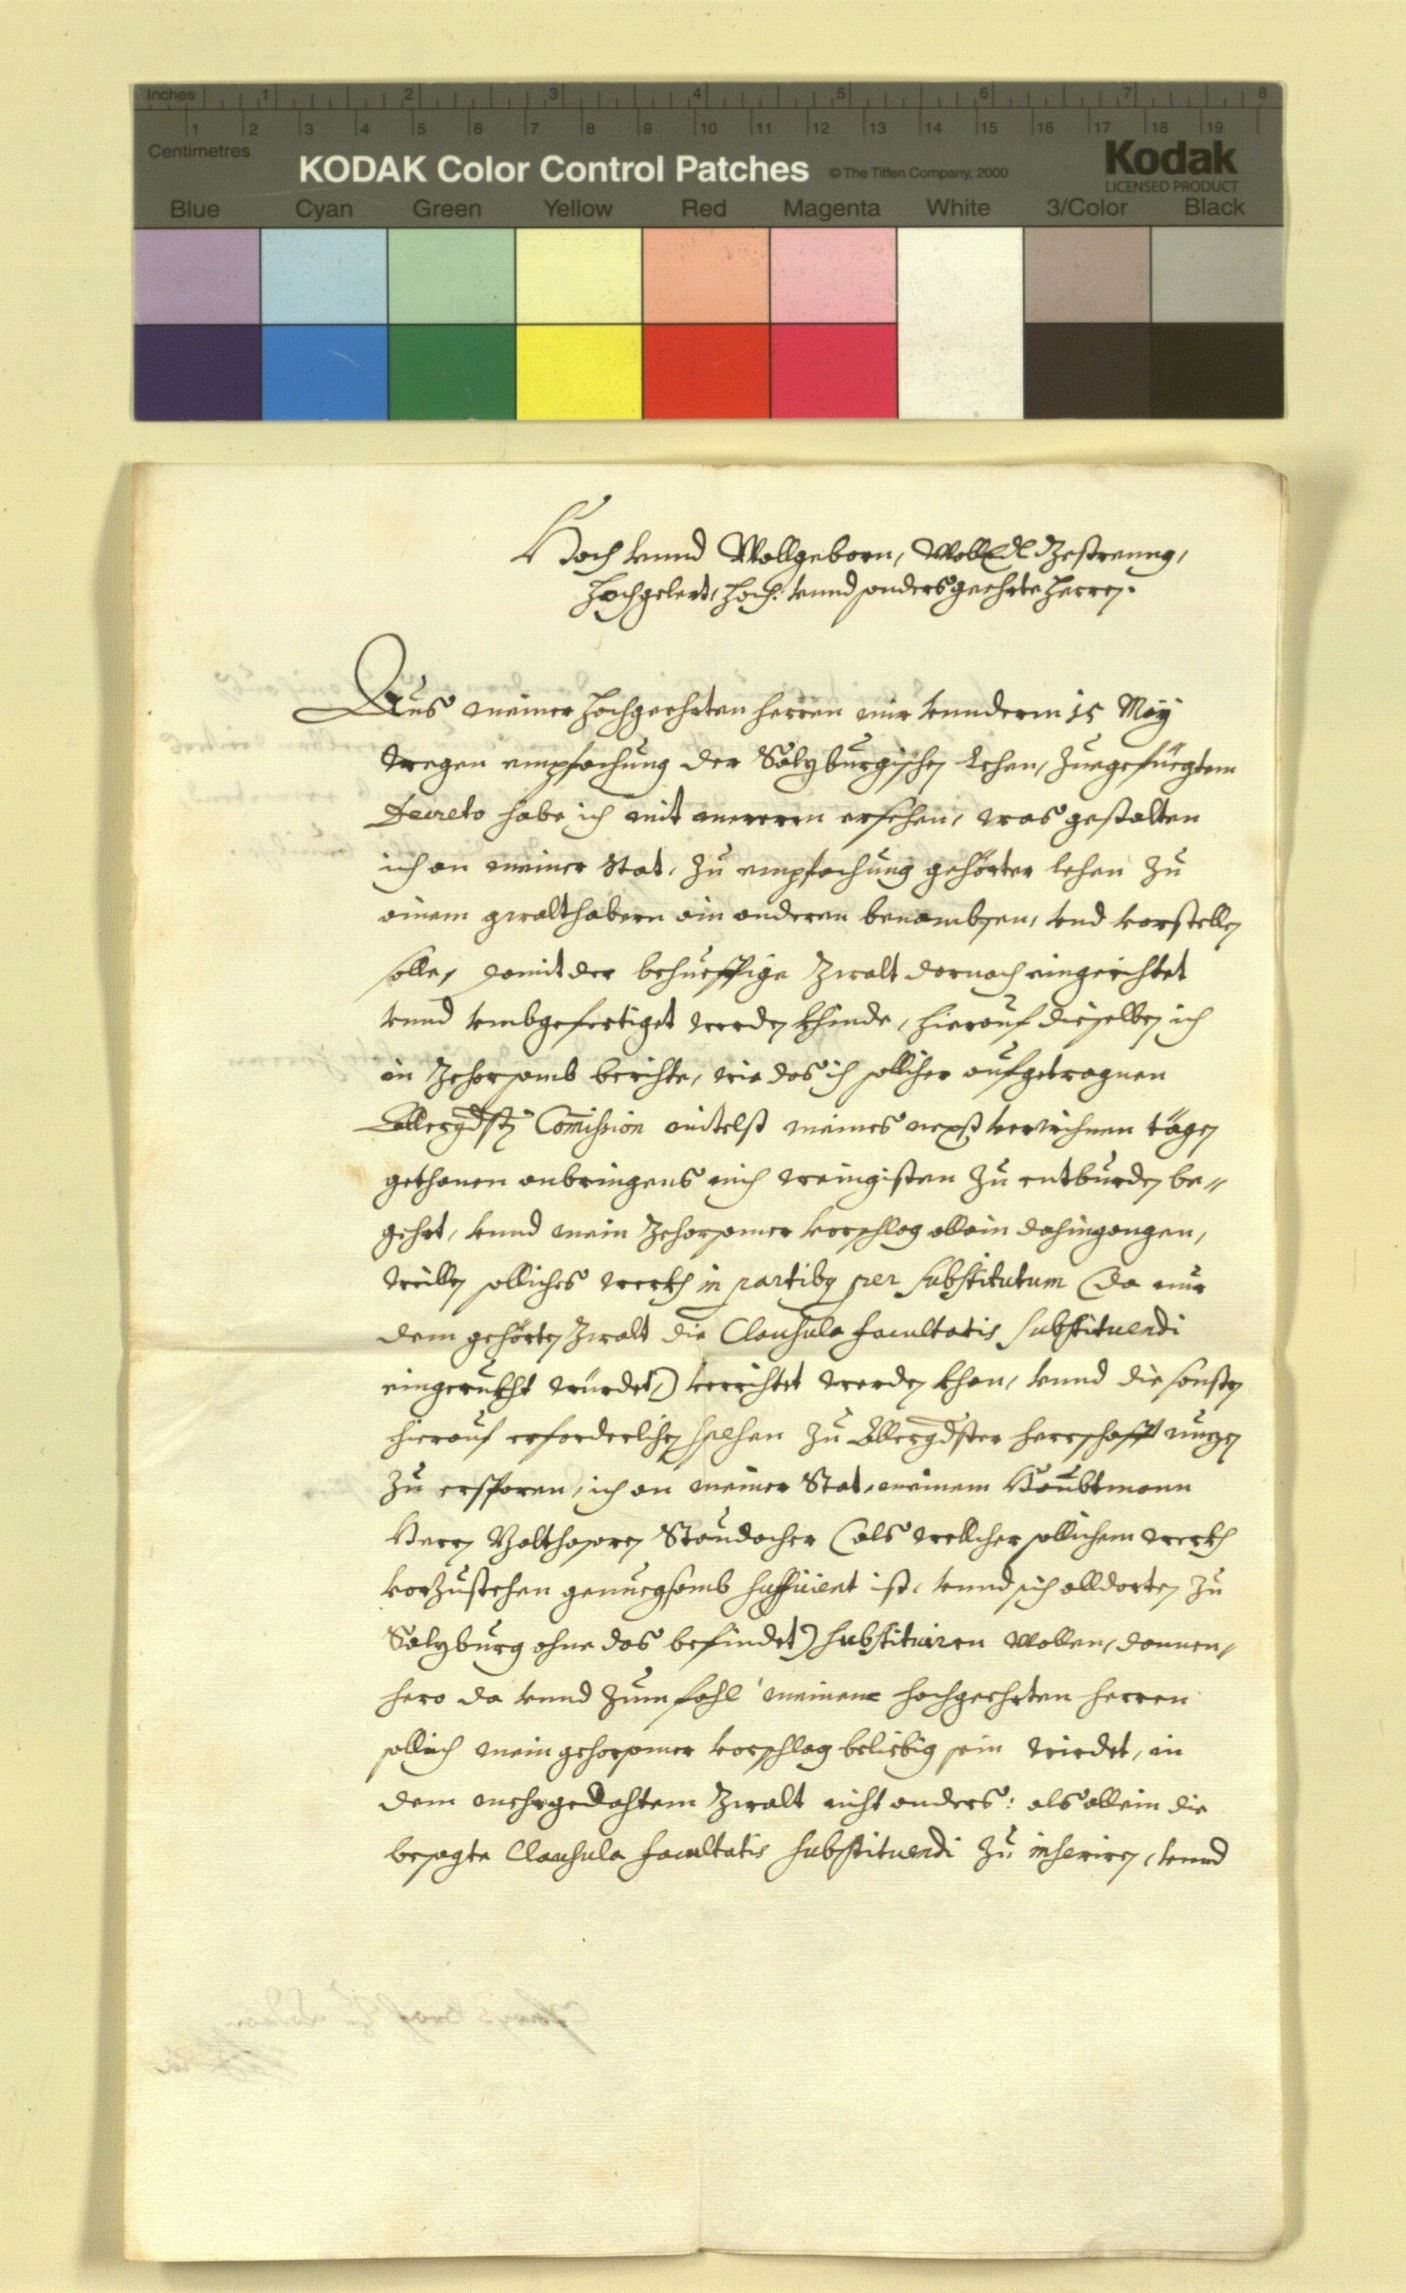 Inches 1 2 3 4 5 6 7 8
1 2 3 4 5 6 7 8 9 10 11 12 13 14 15 16 17 18 19
Centimetres
KODAK Color Control Patches © The Tiffen Company, 2000
Kodak
LICENSED PRODUCT
Blue Cyan Green Yellow Red Magenta White 3/Color Black
Hoch vnnd Wollgeborn, WollEdl Gestreng,
Hochgelert, Hoch: vnnd sonders geehrte Herren.
Aus meiner Hochgeehrten herren mir vnnderm 15 Maÿ
wegen empfachung der Salzburgischen Lehen, zuegefüegtem
Decreto habe ich mit mererm ersehen, was gestalten
ich an meiner stat, zu empfachung gehörter lehen zu
ainem gwalthabern ain anderen benambsen, vnd vorstellen
solle, damit der behueffige Gwalt darnach eingerichtet
vnnd verfertiget werden khinde, hierauf dieselben ich
in Gehorsamb berichte, wie das ich sollicher aufgetragnen
Allergdsten Comission mitelst meines nexst verwichnen tägen
gethanen anbringens mich weingisten zu entburden be-
gehrt, vnnd mein Gehorsamer vorschlag allain dahingangen,
weillen solliches werckh in partibus per substitutum (da nur
dem gehörten Gwalt die Clausula facultatis substituendi
eingerukht würdet) verrichtet werden khan, vnnd die sonsten
hierauf erforderlichen spesen zu Allergdster herrschafft nuzen
zu ersparen, ich an meiner Stat, meinem Haubtmann
Herrn Balthasarn Staudacher (als wellicher sollichem werckh
vorzustehen genuegsamb sufficient ist, vnnd sich alldorten zu
Salzburg ohne das befindet) substituiren wollen, dannen-
hero da vnnd zum fahl meinen hochgeehrten herren
sollich mein gehorsamer vorschlag beliebig sein wirdet, in
dem mehrgedachtem Gwalt nicht anders: als allein die
besagte Clausula facultatis substituendi zu inseriren, vnnd